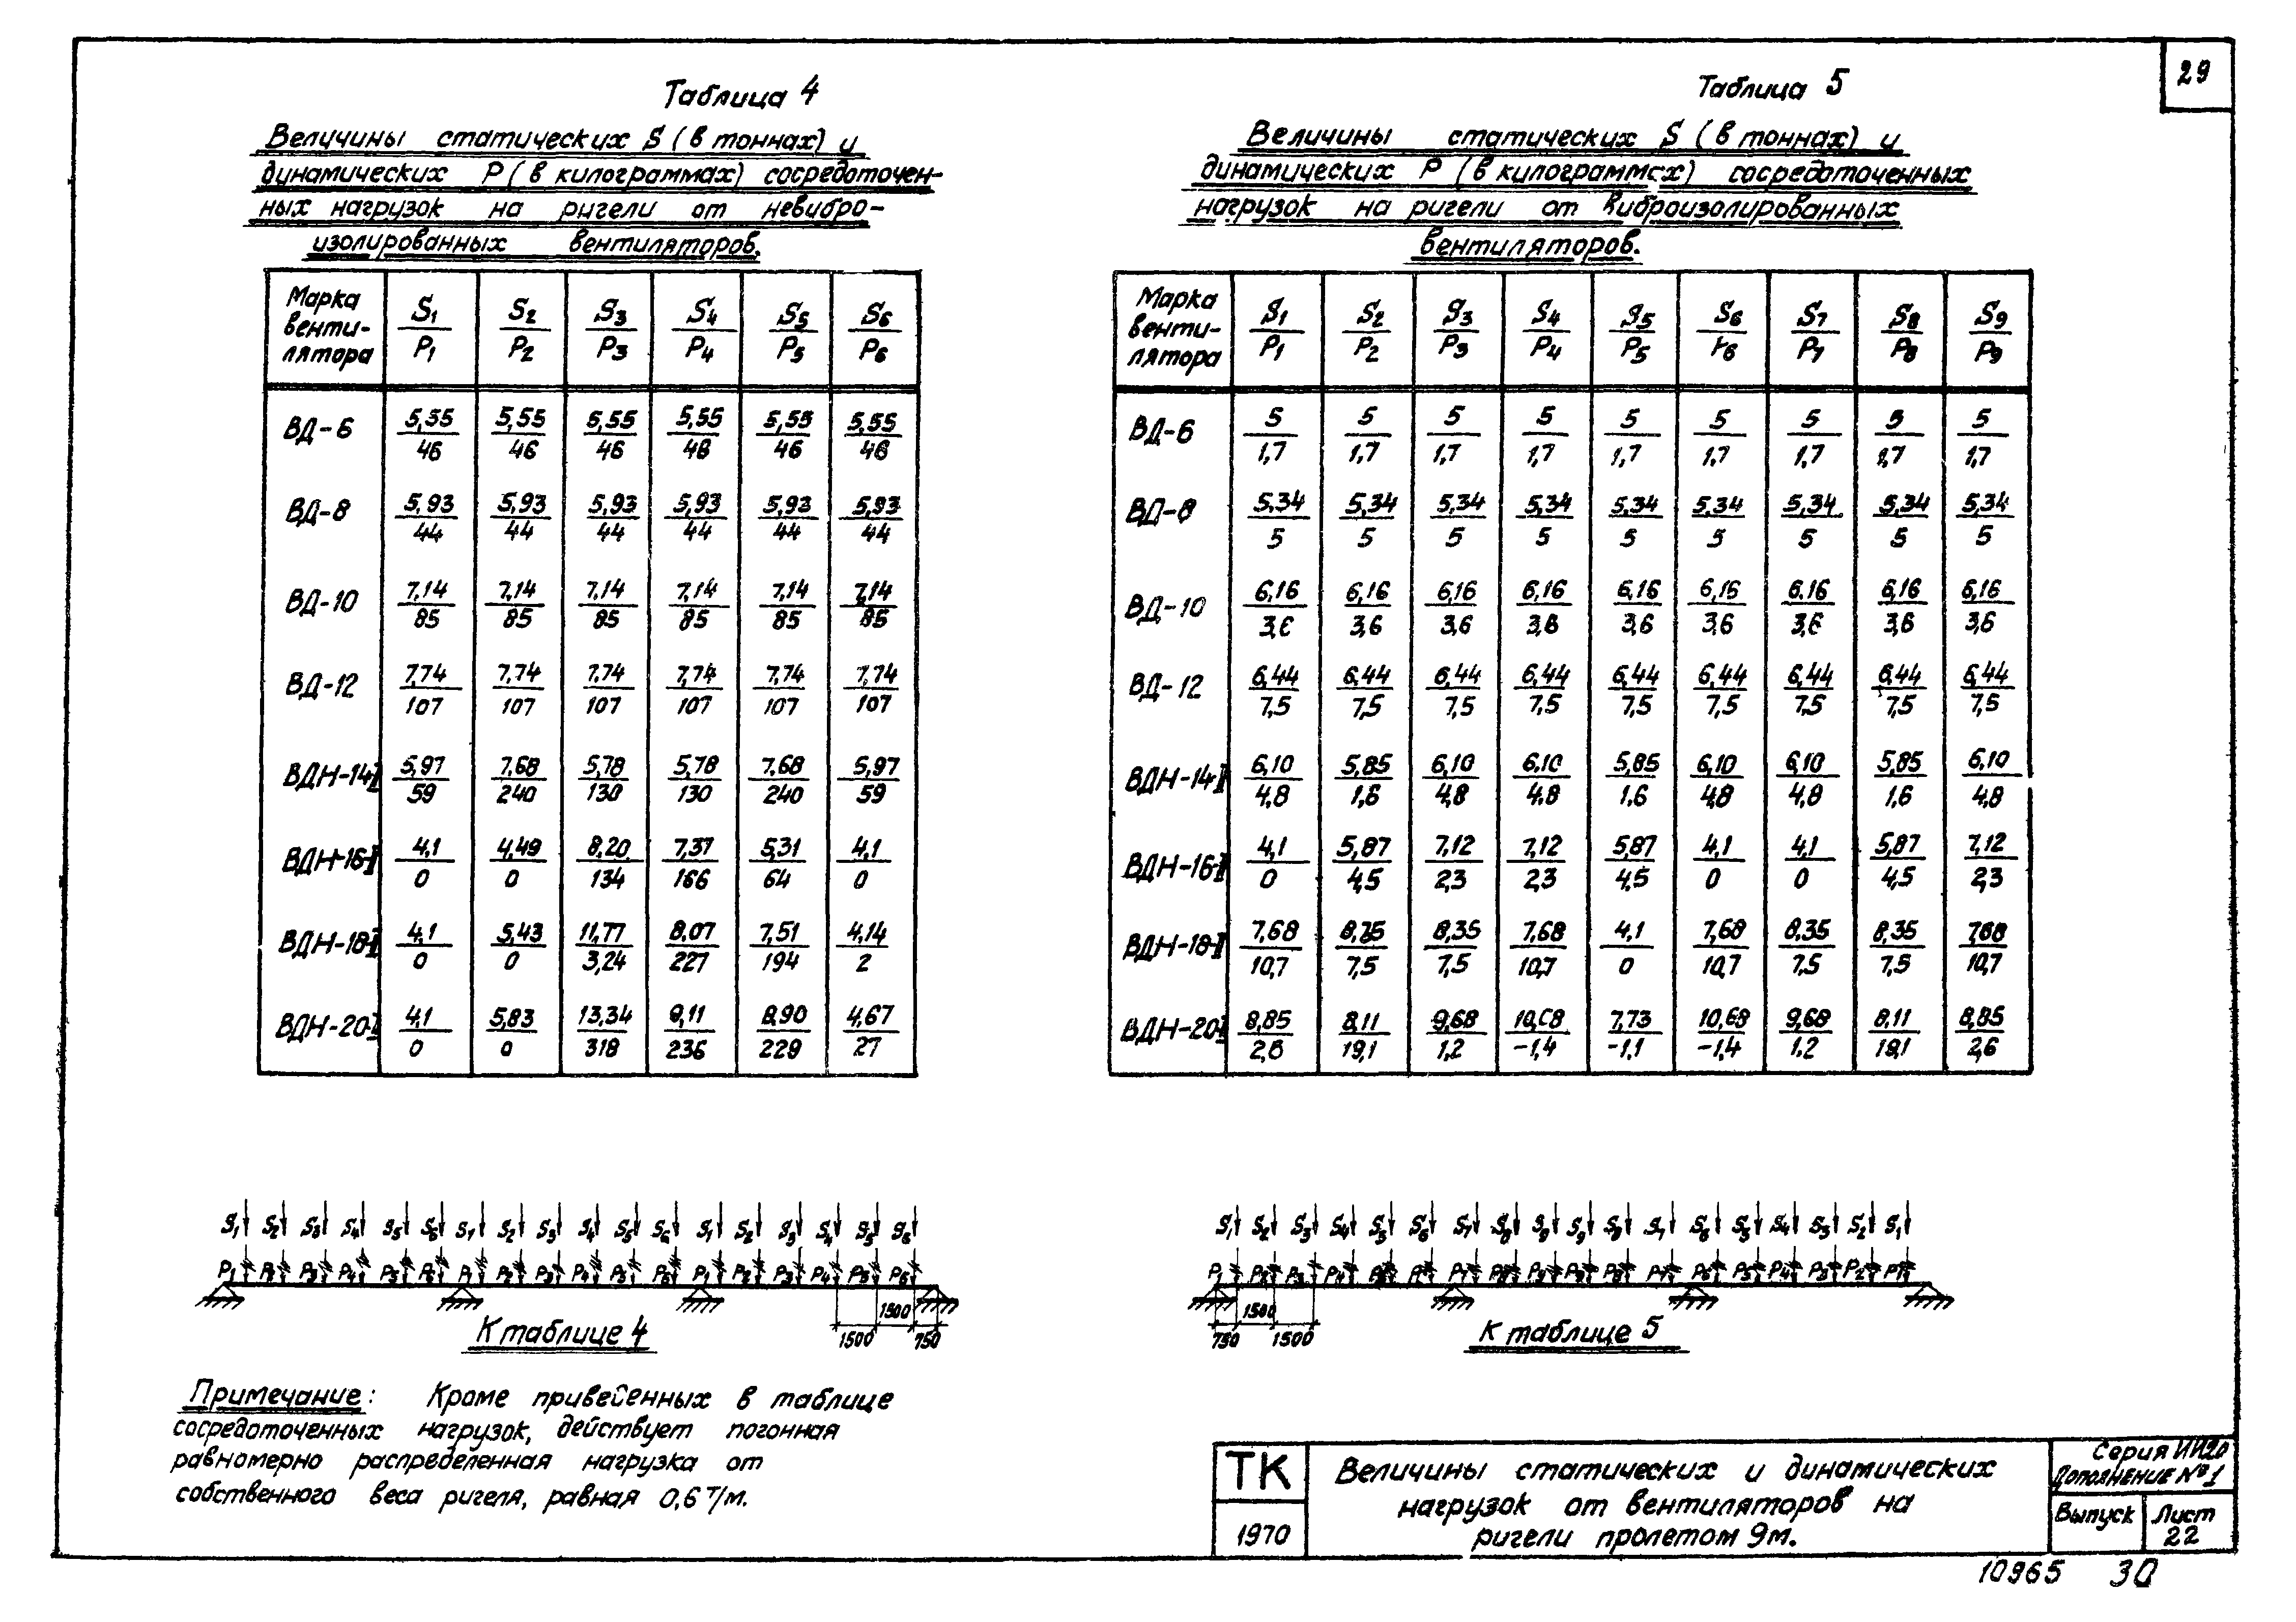 29
Таблица 4
Величины статических S (в тоннах) и
динамических P (в килограммах) сосредоточен-
ных нагрузок на ригели от невибро-
изолированных вентиляторов.
Марка венти-лятора S1/P1 S2/P2 S3/P3 S4/P4 S5/P5 S6/P6
ВД-6 5,55/46 5,55/46 5,55/46 5,55/46 5,55/46 5,55/46
ВД-8 5,93/44 5,93/44 5,93/44 5,93/44 5,93/44 5,93/44
ВД-10 7,14/85 7,14/85 7,14/85 7,14/85 7,14/85 7,14/85
ВД-12 7,74/107 7,74/107 7,74/107 7,74/107 7,74/107 7,74/107
ВДН-14-II 5,97/59 7,68/240 5,78/130 5,78/130 7,68/240 5,97/59
ВДН-16-II 4,1/0 4,49/0 8,20/134 7,37/166 5,31/64 4,1/0
ВДН-18-II 4,1/0 5,43/0 11,77/3,24 8,07/227 7,51/194 4,14/2
ВДН-20-II 4,1/0 5,83/0 13,34/318 9,11/236 8,90/229 4,67/27
Таблица 5
Величины статических S (в тоннах) и
динамических P (в килограммах) сосредоточенных
нагрузок на ригели от виброизолированных
вентиляторов.
Марка венти-лятора S1/P1 S2/P2 S3/P3 S4/P4 S5/P5 S6/P6 S7/P7 S8/P8 S9/P9
ВД-6 5/1,7 5/1,7 5/1,7 5/1,7 5/1,7 5/1,7 5/1,7 5/1,7 5/1,7
ВД-8 5,34/5 5,34/5 5,34/5 5,34/5 5,34/5 5,34/5 5,34/5 5,34/5 5,34/5
ВД-10 6,16/3,6 6,16/3,6 6,16/3,6 6,16/3,6 6,16/3,6 6,16/3,6 6,16/3,6 6,16/3,6 6,16/3,6
ВД-12 6,44/7,5 6,44/7,5 6,44/7,5 6,44/7,5 6,44/7,5 6,44/7,5 6,44/7,5 6,44/7,5 6,44/7,5
ВДН-14-II 6,10/4,8 5,85/1,6 6,10/4,8 6,10/4,8 5,85/1,6 6,10/4,8 6,10/4,8 5,85/1,6 6,10/4,8
ВДН-16-II 4,1/0 5,87/4,5 7,12/2,3 7,12/2,3 5,87/4,5 4,1/0 4,1/0 5,87/4,5 7,12/2,3
ВДН-18-II 7,68/10,7 8,35/7,5 8,35/7,5 7,68/10,7 4,1/0 7,68/10,7 8,35/7,5 8,35/7,5 7,68/10,7
ВДН-20-II 8,85/2,6 8,11/19,1 9,68/1,2 10,68/-1,4 7,73/-1,1 10,68/-1,4 9,68/1,2 8,11/19,1 8,85/2,6
S1 S2 S3 S4 S5 S6 S1 S2 S3 S4 S5 S6 S1 S2 S3 S4 S5 S6
P1 P2 P3 P4 P5 P6 P1 P2 P3 P4 P5 P6 P1 P2 P3 P4 P5 P6
1500
1500 750
К таблице 4
S1 S2 S3 S4 S5 S6 S7 S8 S9 S9 S8 S7 S6 S5 S4 S3 S2 S1
P1 P2 P3 P4 P5 P6 P7 P8 P9 P9 P8 P7 P6 P5 P4 P3 P2 P1
1500
750 1500
К таблице 5
Примечание: Кроме приведенных в таблице
сосредоточенных нагрузок, действует погонная
равномерно распределенная нагрузка от
собственного веса ригеля, равная 0,6 т/м.
ТК
1970
Величины статических и динамических
нагрузок от вентиляторов на
ригели пролетом 9м.
Серия ИИ20
Дополнение №1
Выпуск
Лист
22
10965 30